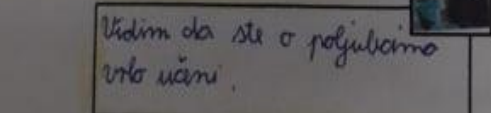 Vidim da ste o poljubcima
vrlo učeni.